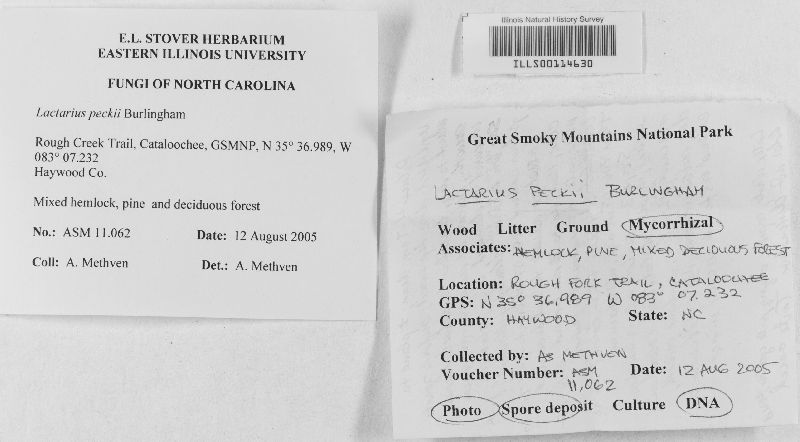 E.L. STOVER HERBARIUM
EASTERN ILLINOIS UNIVERSITY
FUNGI OF NORTH CAROLINA
Lactarius peckii Burlingham
Rough Creek Trail, Cataloochee, GSMNP, N 35° 36.989, W
083° 07.232
Haywood Co.
Mixed hemlock, pine and deciduous forest
No.: ASM 11.062 Date: 12 August 2005
Coll: A. Methven Det.: A. Methven
Illinois Natural History Survey
ILLS00114630
Great Smoky Mountains National Park
LACTARIUS PECKII BURLINGHAM
Wood Litter Ground Mycorrhizal
Associates: HEMLOCK, PINE, MIXED DECIDUOUS FOREST
Location: ROUGH FORK TRAIL, CATALOOCHEE
GPS: N 35° 36.989 W 083° 07.232
County: HAYWOOD State: NC
Collected by: AS METHVEN
Voucher Number: ASM Date: 12 AUG 2005
11,062
Photo Spore deposit Culture DNA